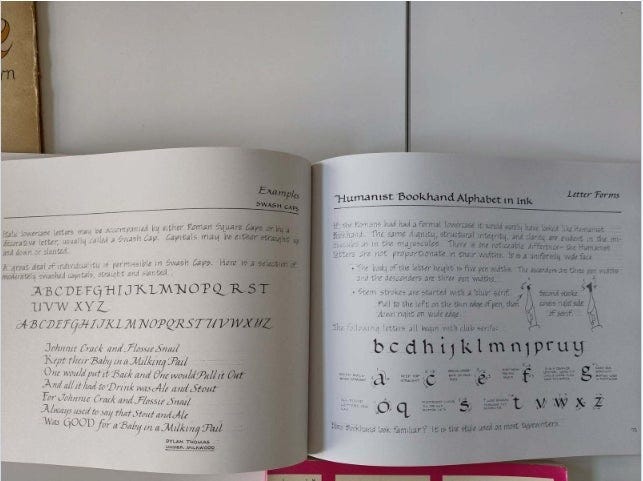 rn
Examples
SWASH CAPS
Italic lowercase letters may be accompanied by either Roman Square Caps or by a
decorative letter, usually called a Swash Cap. Capitals may be either straight up
and down or slanted.
A great deal of individuality is permissible in Swash Caps. Here is a selection of
moderately swashed capitals, straight and slanted.
ABCDEFGHIJKLMNOPQ RST
UVW XYZ
ABCDEFGHIJKLMNOPQRSTUVWXYZ
Johnnie Crack and Flossie Snail
Kept their Baby in a Milking Pail
One would put it Back and One would Pull it Out
And all it had to Drink was Ale and Stout
For Johnnie Crack and Flossie Snail
Always used to say that Stout and Ale
Was GOOD for a Baby in a Milking Pail
DYLAN THOMAS
UNDER MILKWOOD
Humanist Bookhand Alphabet in Ink
Letter Forms
If the Romans had had a formal lowercase it would surely have looked like Humanist
Bookhand. The same dignity, structural integrity, and clarity are evident in the mi-
nuscules as in the majuscules. There is one noticeable difference - the Humanist
letters are not proportionate in their widths. It is a uniformly wide face.
• The body of the letter height is five pen widths. The ascenders are three pen widths
and the descenders are three pen widths.
• Stem strokes are started with a "slur" serif.
Pull to the left on the thin edge of pen, then
down right on wide edge.
Second stroke
covers right side
of serif.
The following letters all begin with slub serifs:
b c d h i j k l m n j p r u y
a c e f g
o q s t v w x z
Does Bookhand look familiar? It is the style used on most typewriters.